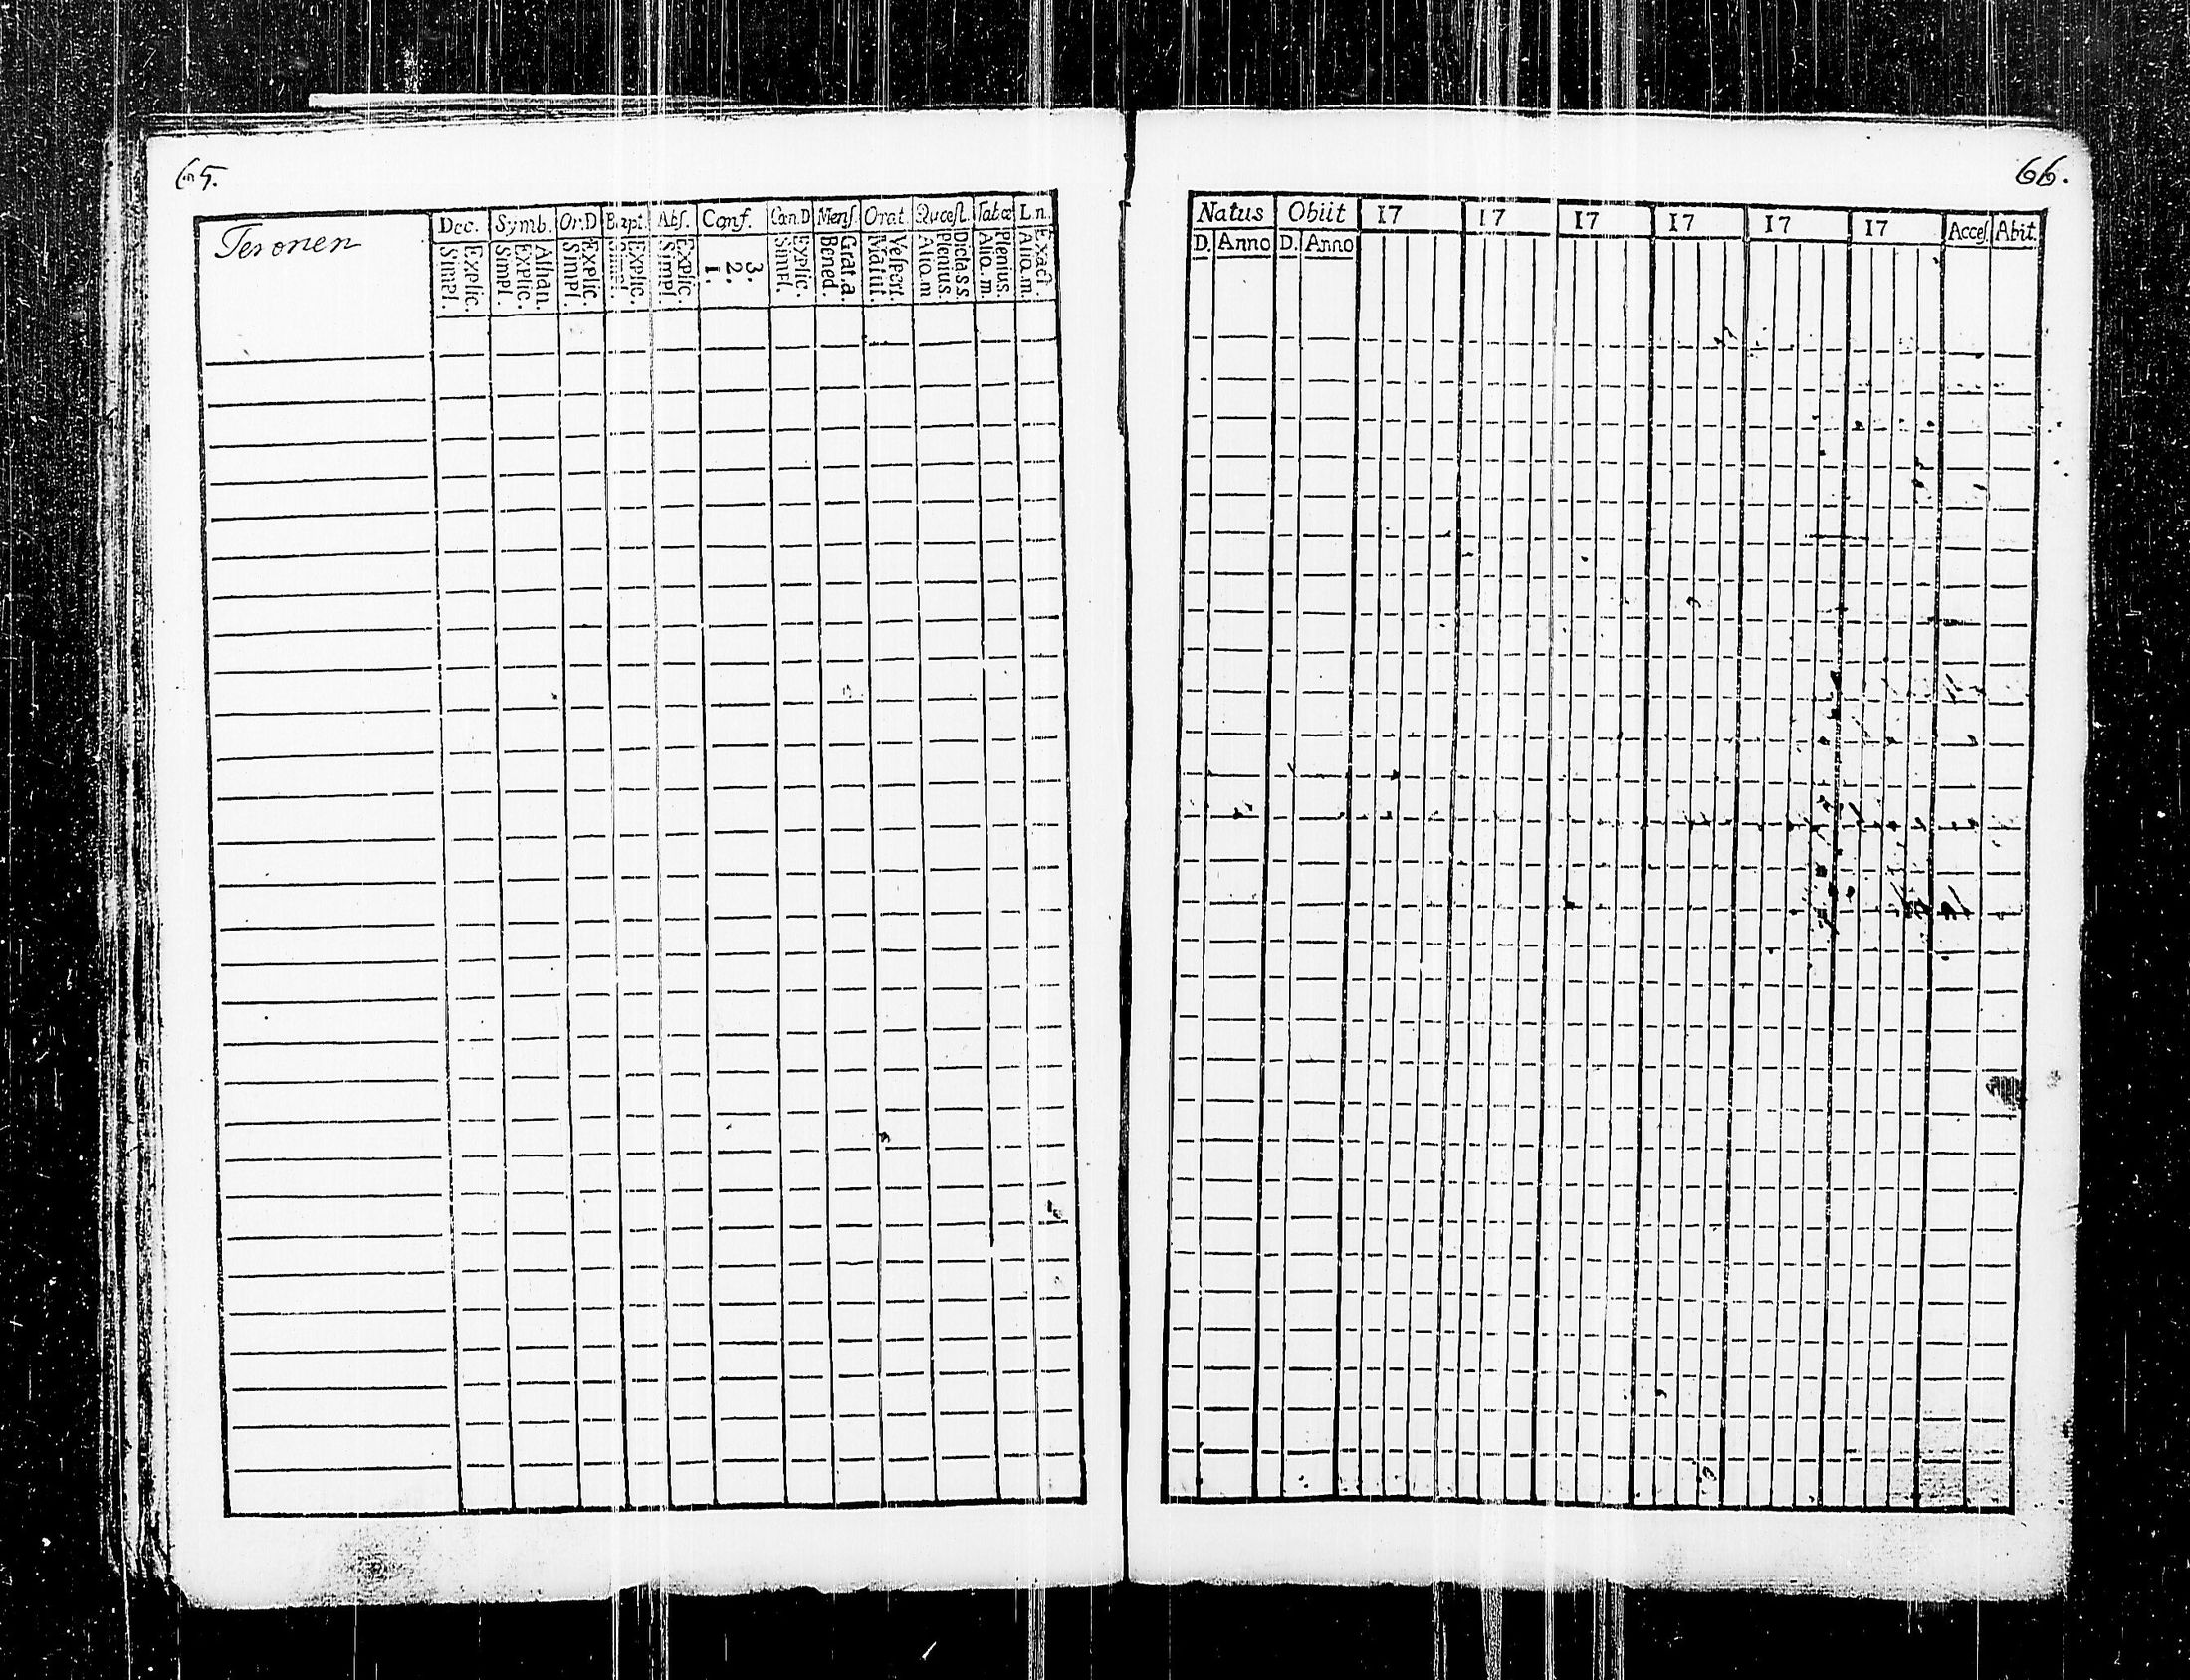 65.
Teronen
Dec. Symb. Or.D Bapt. Abs. Conf. Can.D Mens. Orat. Quæst. Tabæ L.n.
Explic. Simpl. Athan. Explic. Simpl. Explic. Simpl. Explic. Simpl. Explic. Simpl. 3. 2. 1. Explic. Simpl. Grat.a. Bened. Vespert. Matut. Dicta s.s. Plenius. Aliq.m Plenius. Aliq.m. Exact. Aliq.m.
66.
Natus Obiit 17 17 17 17 17 17 Acces. Abit.
D. Anno D. Anno